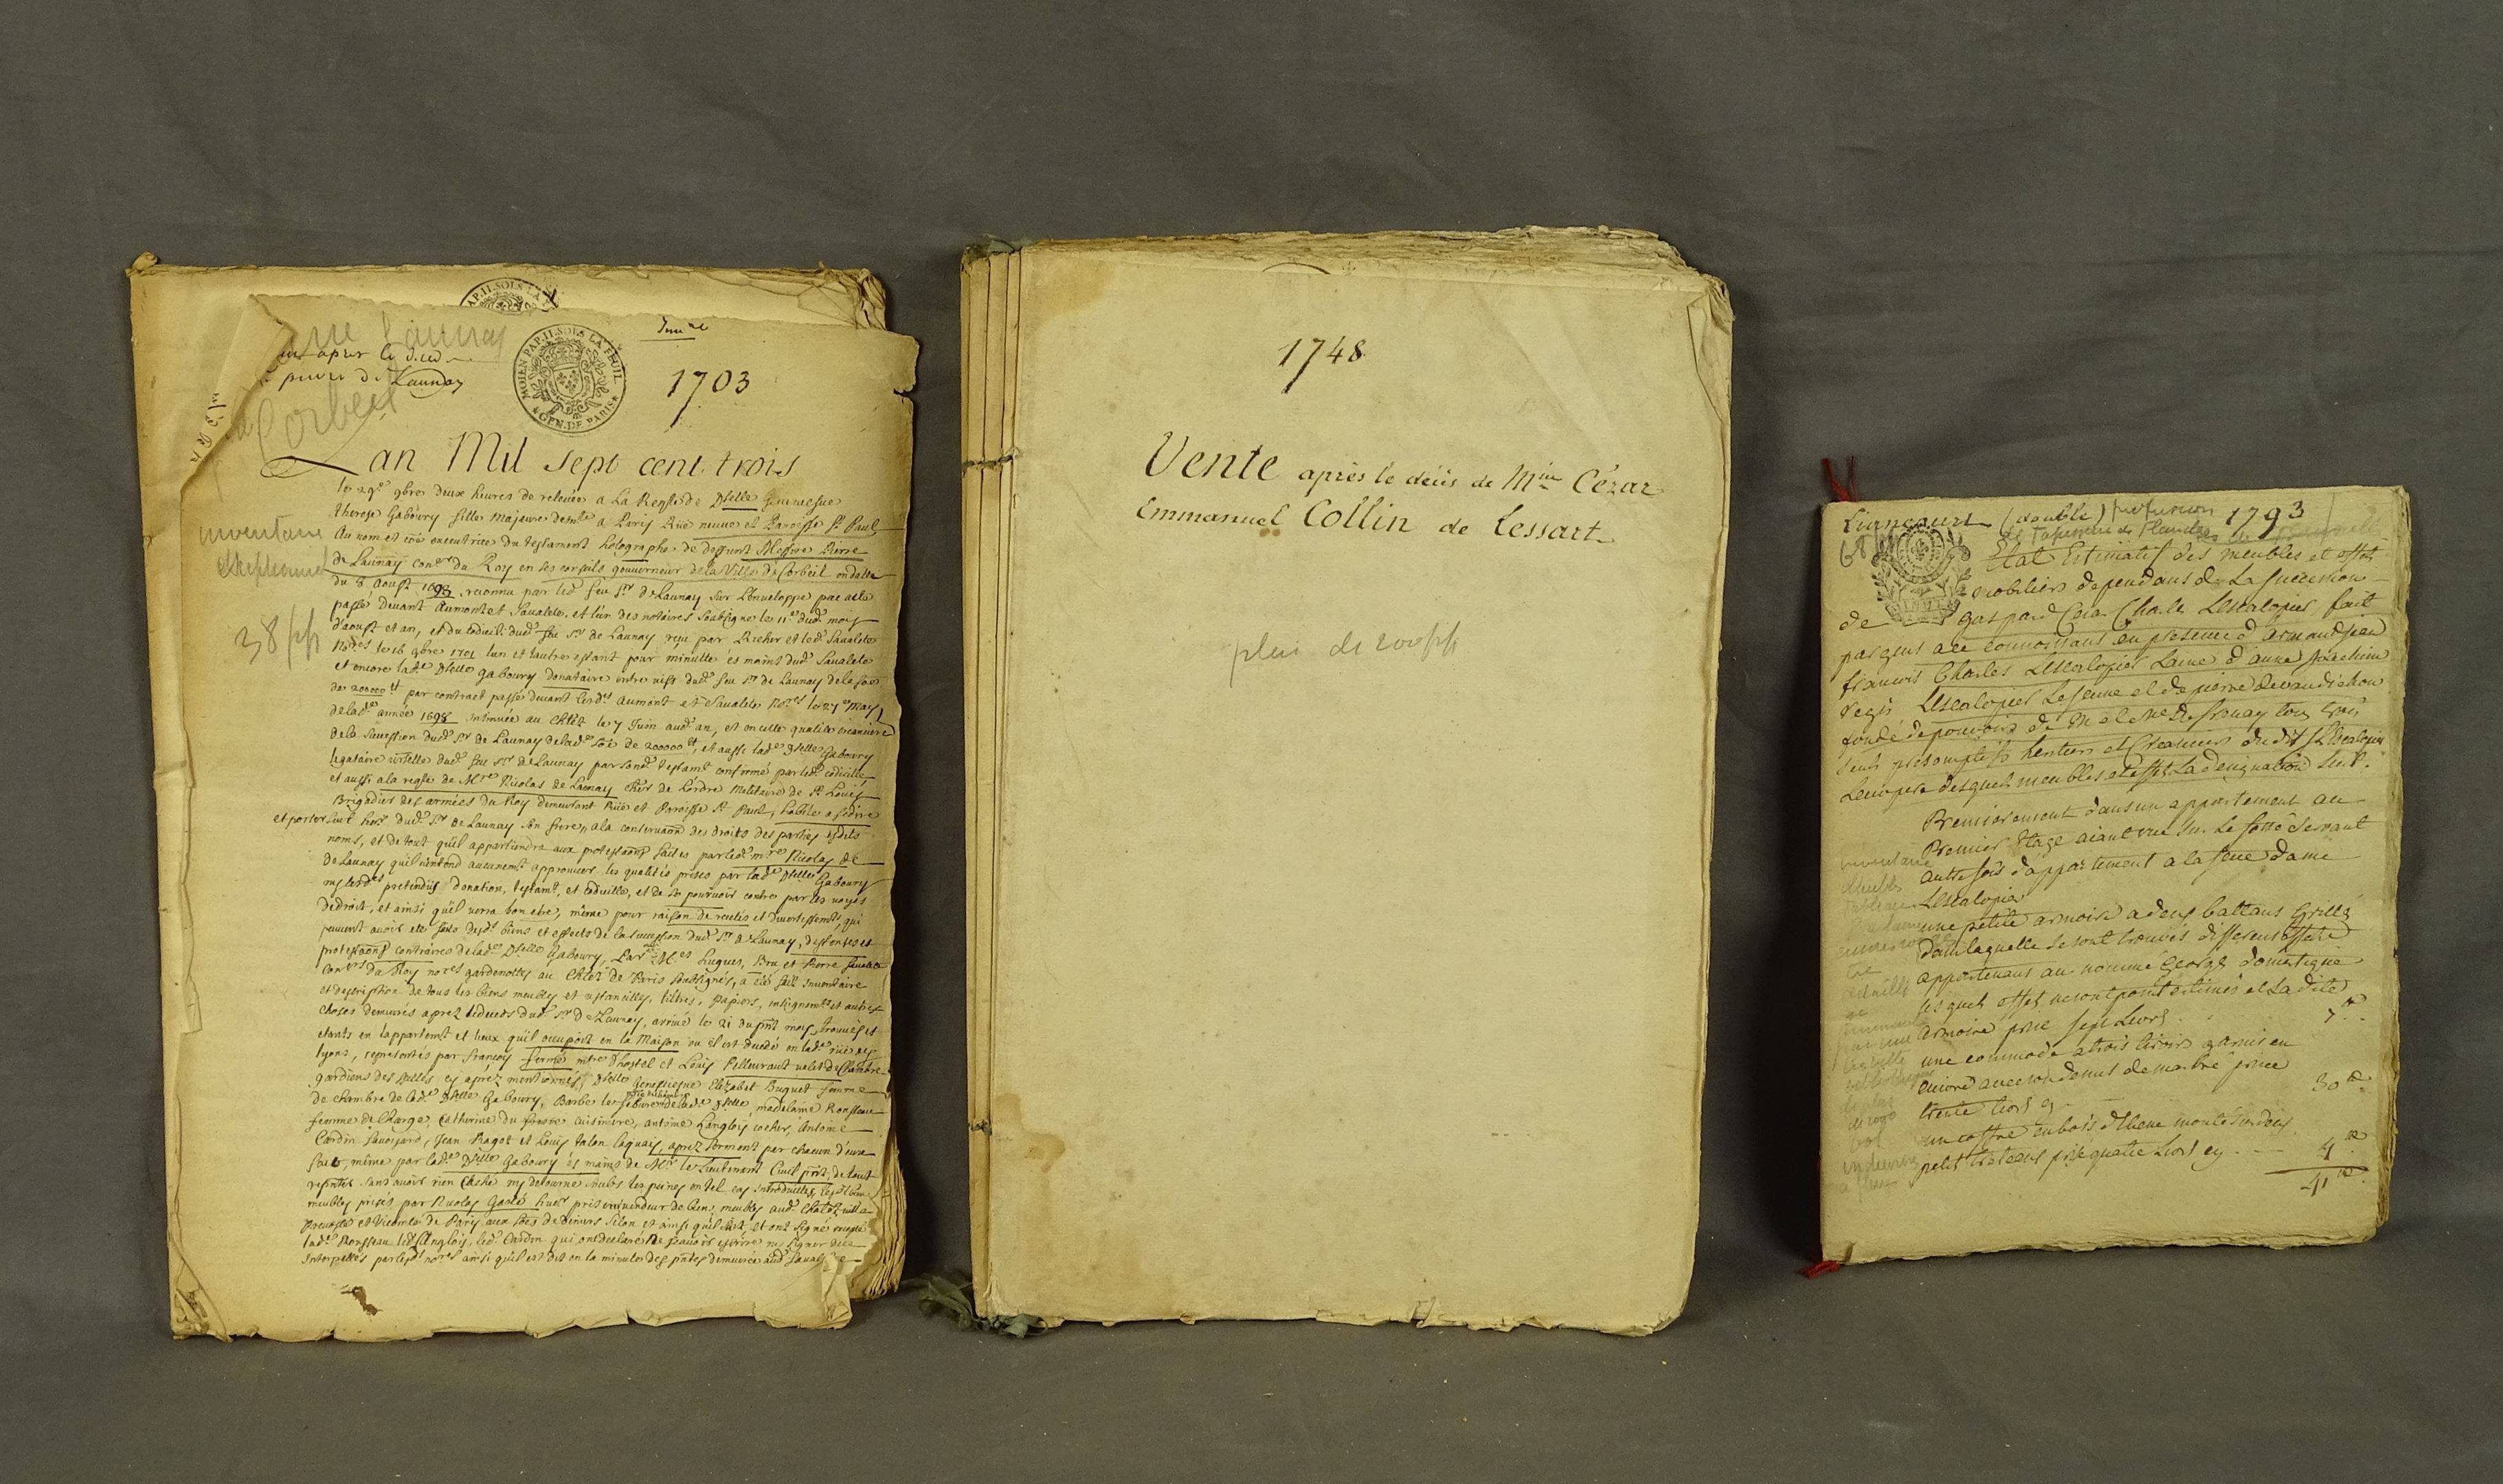 MOIEN PAP. II. SOLS LA FEUIL.
GEN. DE PARIS
1703
après le deced
de Launay
Corbeil
Lan Mil sept cent trois
le 29e 9bre deux heures de relevée a La Reqste de Dlle Geneviesve
therese Gaboury fille Majeure demte a Paris Rüe neuve et Parroisse St Paul
Au nom et côe executrice du testament holographe de deffunt Messire Pierre
de Launay coner du Roy en ses conseils gouverneur de la Ville de Corbeil en datte
du 8 Aoust 1698 reconnu par led. feu Sr de Launay sur L'enveloppe par acte
passé devant Aumont et Savalete et l'un des notaires soubsigné le 11e dud. mois
d'aoust et an, et du codicil dud. feu Sr de Launay reçu par Richer et led. Savalete
Nores le 16 9bre 1701 lun et l'autre estant pour minutte ès mains dud. Savalete
et encore lad. Dlle Gaboury donataire entre vifs dud. feu Sr de Launay de la soe
de 200000tt par contract passé devant lesds Aumont et Savalete Nores le 27e May
de lad. année 1698 insinuée au Chlet le 7 Juin aud. an, et en cette qualité creanciere
de la succession dud. Sr de Launay de lad. soe de 200000tt, et aussi lad. Dlle Gaboury
legataire dud. feu Sr de Launay par sond. testamt confirmé par led. codicille
et aussi a la reqste de Mre Nicolas de Launay Cher de L'ordre Militaire de St Louis
Brigadier des armées du Roy demeurant Rüe et Paroisse St Paul, habile a se dire
et porter seul herr dud. Sr de Launay son frere, a la conservaon des droits des parties esdits
noms, et de tout qu'il appartiendra aux protestaons faites par led. Mre Nicolas de
de Launay qu'il n'entend aucunemt approuver les qualités prises par lad. Dlle Gaboury
ny lesdes pretendus donation, testamt, et codicille, et de se pourvoir contre par les voyes
de droit, et ainsi qu'il verra bon estre, même pour raison de recelés et divertissemts qui
peuvent avoir esté faits desd. biens et effects de la succession dud. Sr de Launay, deffenses et
protestaons contraires de lad. Dlle Gaboury, Par Mes Hugues, Bru et Pierre Savalete
Coners du Roy nores gardenottes au Chlet de Paris soubsignés, a été fait Inventaire
et description de tous les biens meubles et ustancilles, titres, papiers, enseignemts et autres
choses demeurés aprez le deceds dud. Sr de Launay, arrivé le 21 du pnt mois, trouvés et
etants en l'appartemt et lieux qu'il occupoit en la Maison ou il est decedé en lad. rüe des
lyons, representés par François fermé mtre d'hostel et Louis Pelleurant valet de Chambre
gardiens des scellés cy aprez mentionnés, Dlle Genevieve Elizabet Buguet femme
de chambre de lad. Dlle Gaboury, Barbe lefebure de lad. Dlle, madelaine Rousseau
femme de Charge, Catherine du fresne cuisiniere, antoine Langlois cocher, Antoine
Cardin Savoyard, Jean Ragot et Louis talon laquais, aprez serment par chacun d'eux
fait, même par lad. Dlle Gaboury ès mains de Mr le Lieutenant Civil, de tout
representer sans avoir rien Caché ny detourné soubs les peines en tel cas Introduittes, lesd. biens
meubles prisés par Nicolas Gasté huer priseur vendeur de biens meubles aud. Chlet ville
Prevosté et Vicomté de Paris aux soes de deniers selon et ainsi qu'il suit, et ont signé excepté
lad. Rousseau led. Langlois, led. Cardin qui ont declaré ne scavoir escrire ny signer de ce
Interpellés par lesd. nores ainsi qu'il est dit en la minute des pntes demeurée aud. Savalete
Inventaire
38 pp
1748
Vente après le décès de Mire Cézar
Emmanuel Collin de Lessart
plus de 200 pp
Liancourt (double) succession 1793
et Tapisserie de Flandres
68
Etat Estimatif des meubles et effets
mobiliers dependans de La succession
de gaspard Cesar Charle Lescalopier fait
par gens a ce connoissant en presence d'armand jean
françois Charles Lescalopier Laine d'anne joachim
regis Lescalopier Le jeune et de pierre devaudichon
fondé de pouvoirs de Mr et Me Defrouay tous trois
seuls presomptifs heritiers et Creanciers du dit S. Lescalopier
desquels meubles et effets La designation suit.
Premierement dans un appartement au
Premier Etage aiant vue sur Le fossé servant
autrefois d'appartement a la feue dame
Lescalopier
une petite armoire a deux battans Grillés
dans laquelle se sont trouvés differens effets
appartenans au nommé George domestique
lesquels effets ne sont point estimés et La dite
armoire prisé sept Livres 7tt
une commode a trois tiroirs garnis en
cuivre avec son dessus de marbre prisée
trente Livres cy 30tt
un coffre en bois d'hene monté sur deux
petit treteaux prisé quatre Livres cy 4tt
41tt